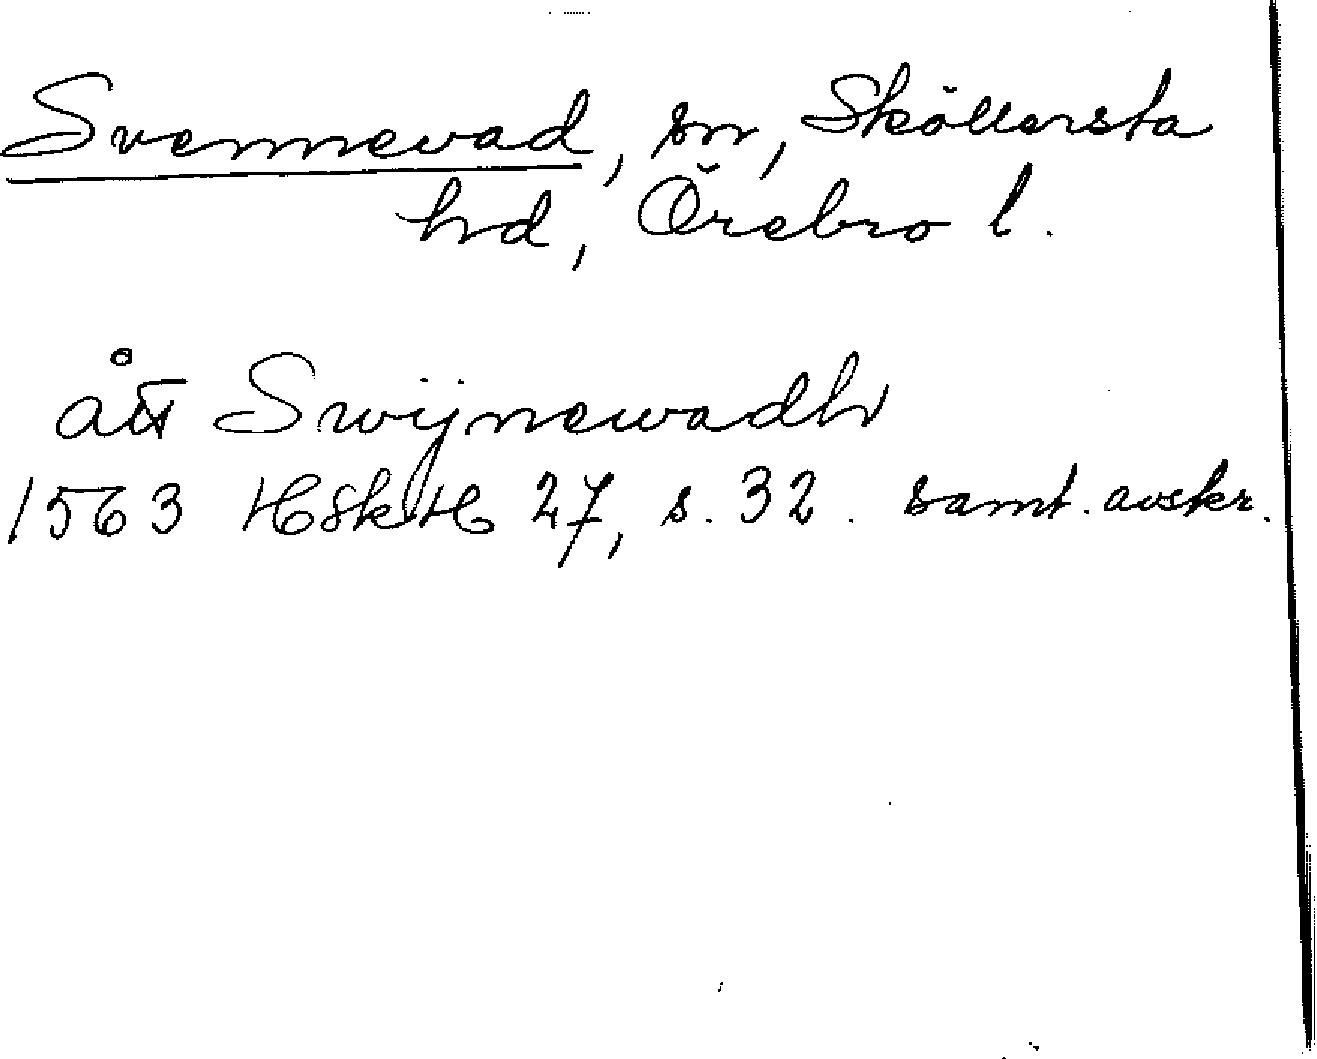 Svennevad, sn, Sköllersta
hd, Örebro l.
ått Swijnewadh
1563 HSkH 27, s. 32. samt. avskr.